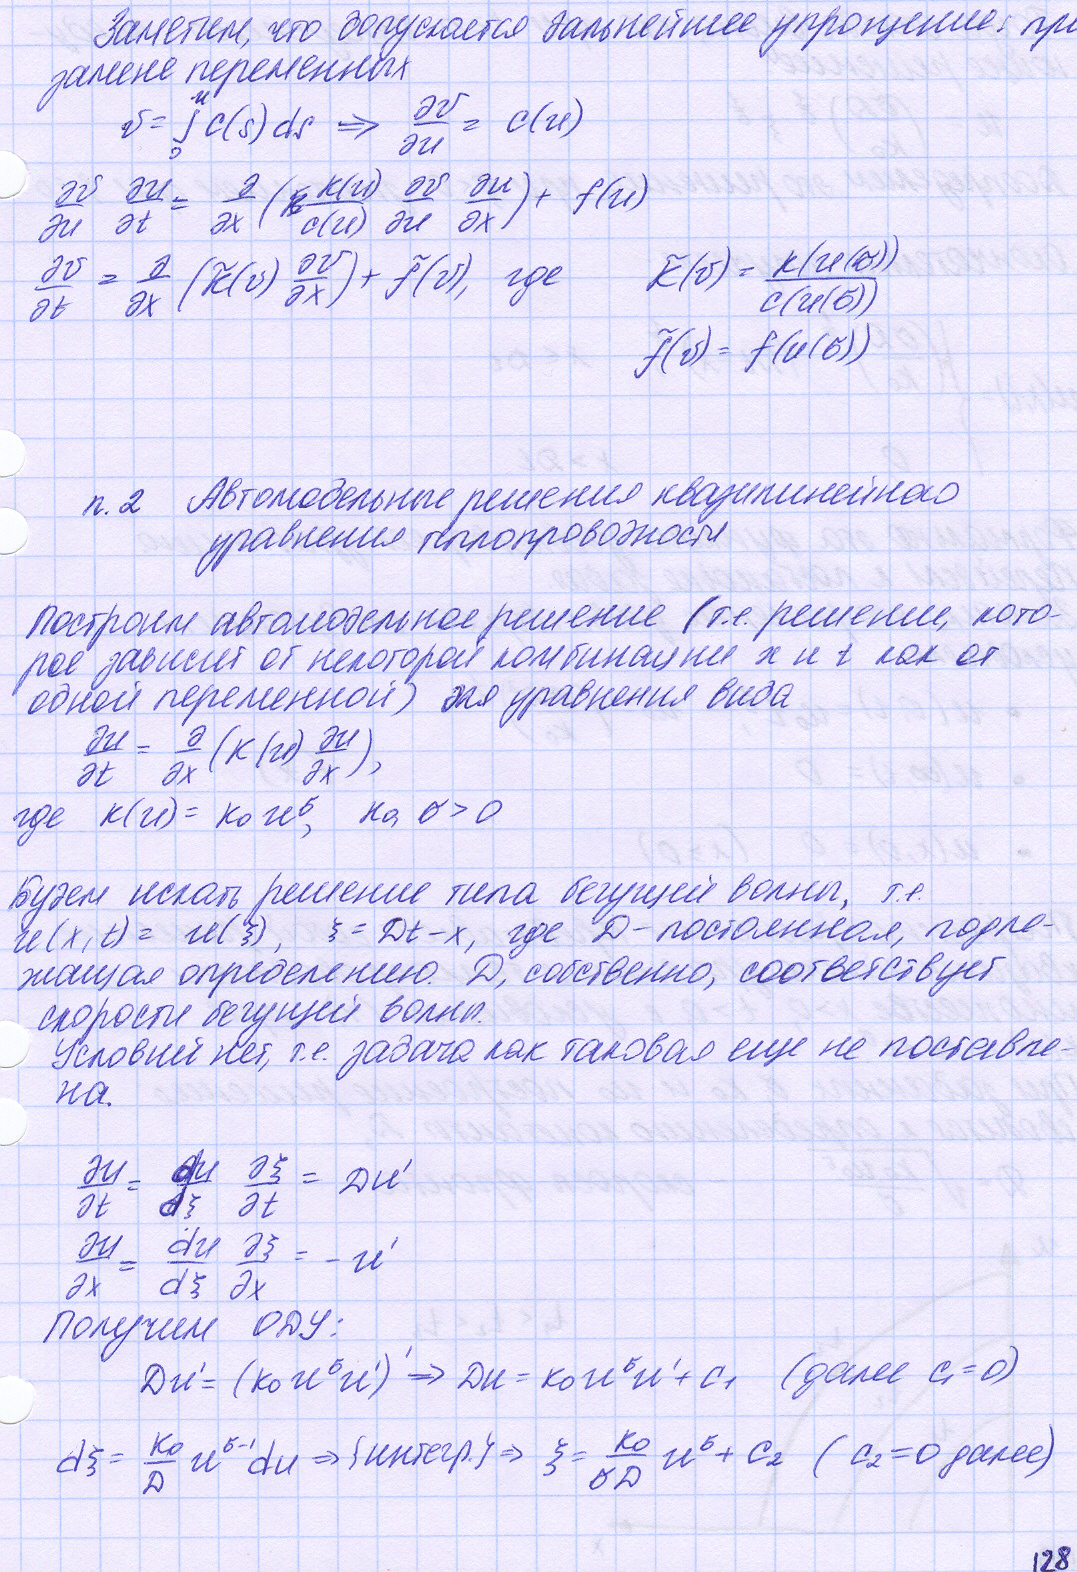 Заметим, что допускается дальнейшее упрощение: при
замене переменных
v = ∫₀ᵘ c(s) ds ⇒ ∂v/∂u = c(u)
∂v/∂u ∂u/∂t = ∂/∂x (k(u)/c(u) ∂v/∂u ∂u/∂x) + f(u)
∂v/∂t = ∂/∂x (k̃(v) ∂v/∂x) + f̃(v), где k̃(v) = k(u(v))/c(u(v))
f̃(v) = f(u(v))
п.2 Автомодельные решения квазилинейного
уравнения теплопроводности
Построим автомодельное решение (т.е. решение, кото-
рое зависит от некоторой комбинации x и t как от
одной переменной) для уравнения вида
∂u/∂t = ∂/∂x (k(u) ∂u/∂x),
где k(u) = k₀ u^σ, k₀, σ > 0
Будем искать решение типа бегущей волны, т.е.
u(x,t) = u(ξ), ξ = Dt - x, где D - постоянная, подле-
жащая определению. D, собственно, соответствует
скорости бегущей волны.
Условий нет, т.е. задача как таковая еще не поставле-
на.
∂u/∂t = du/dξ ∂ξ/∂t = Du'
∂u/∂x = du/dξ ∂ξ/∂x = -u'
Получим ОДУ:
Du' = (k₀ u^σ u')' ⇒ Du = k₀ u^σ u' + c₁ (далее c₁ = 0)
dξ = k₀/D u^(σ-1) du ⇒ {интегр.} ⇒ ξ = k₀/(σD) u^σ + c₂ (c₂ = 0 далее)
128